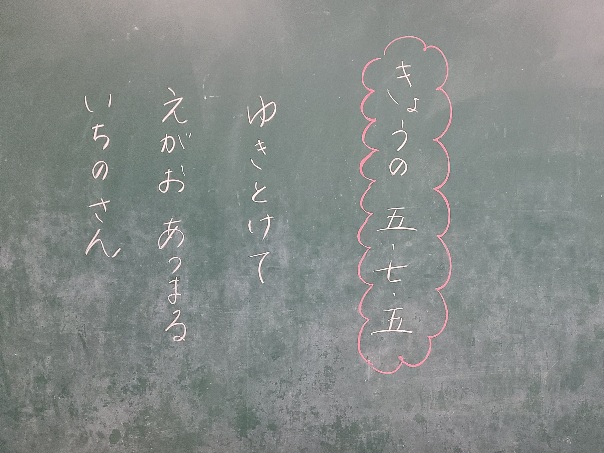 きょうの 五・七・五
ゆきとけて
えがお あつまる
いちの さん